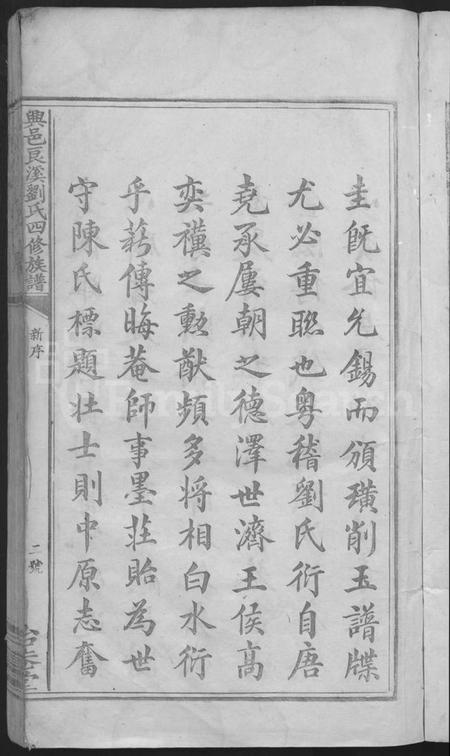 圭旣宜允錫而頒璜削玉譜牒
尤必重聯也粤稽劉氏衍自唐
堯承屢朝之德澤世濟王侯高
奕禩之勳猷頻多将相白水衍
乎菥傳晦菴師事墨莊貽為世
守陳氏標題壯士則中原志奮
興邑良溪劉氏四修族譜
新序
二號
FamilySearch